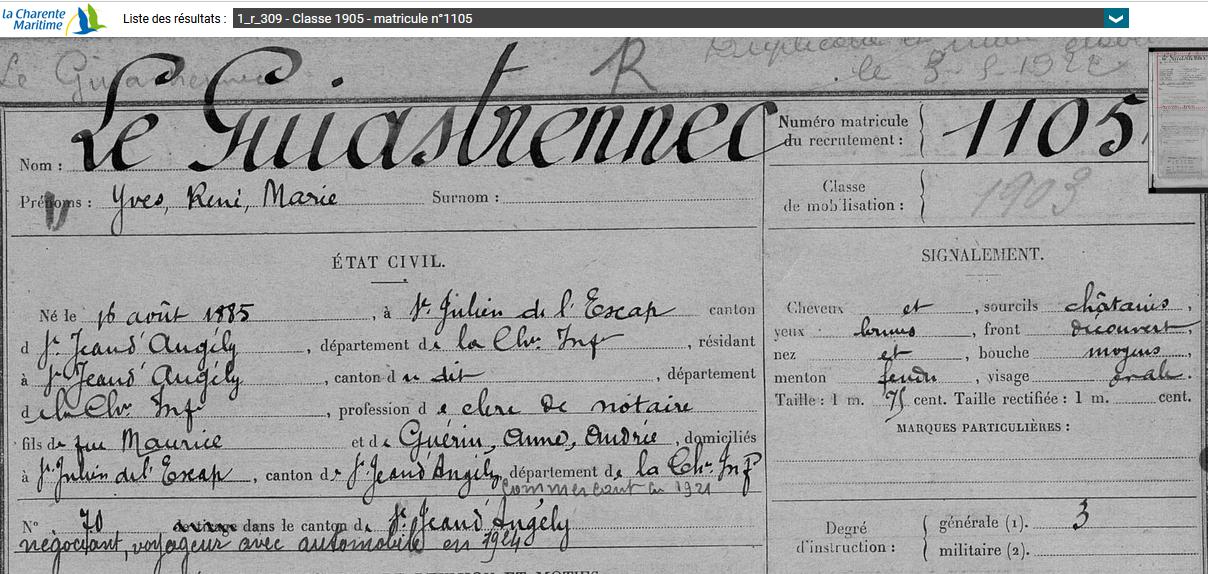 la Charente
Maritime
Liste des résultats : 1_r_309 - Classe 1905 - matricule n°1105
le 5-5-1922
Le Guiastrennec
R
Nom : Le Guiastrennec
Numéro matricule
du recrutement : 1105
Prénoms : Yves, René, Marie Surnom :
Classe
de mobilisation : 1903
ÉTAT CIVIL.
Né le 16 août 1885, à St Julien de l'Escap canton
d St Jean d'Angély, département de la Chte Infre, résidant
à St Jean d'Angély, canton du dit, département
de la Chte Infre, profession de clerc de notaire
fils de feu Maurice et de Guérin, Anne, Andrée, domiciliés
à St Julien de l'Escap, canton de St Jean d'Angély, département de la Chte Infre
Commercant en 1921
N° 70 de tirage dans le canton de St Jean d'Angély
négociant, voyageur avec automobile en 1924
SIGNALEMENT.
Cheveux et, sourcils châtains,
yeux bruns, front découvert,
nez et, bouche moyens,
menton fendu, visage ovale.
Taille : 1 m. 75 cent. Taille rectifiée : 1 m. cent.
MARQUES PARTICULIÈRES :
Degré
d'instruction :
générale (1). 3
militaire (2).